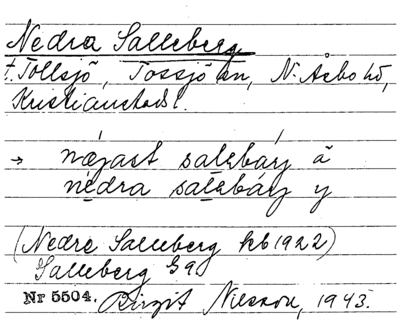 Nedra Salleberg
t. Tollsjö, Tossjö sn, N. Åsbo hd,
Kristianstads l.
→ næjast salsbárj ä
nedra salsbárj y
(Nedre Salleberg kb 1922)
Salleberg Ga
Nr 5504. Birgit Nilsson, 1943.